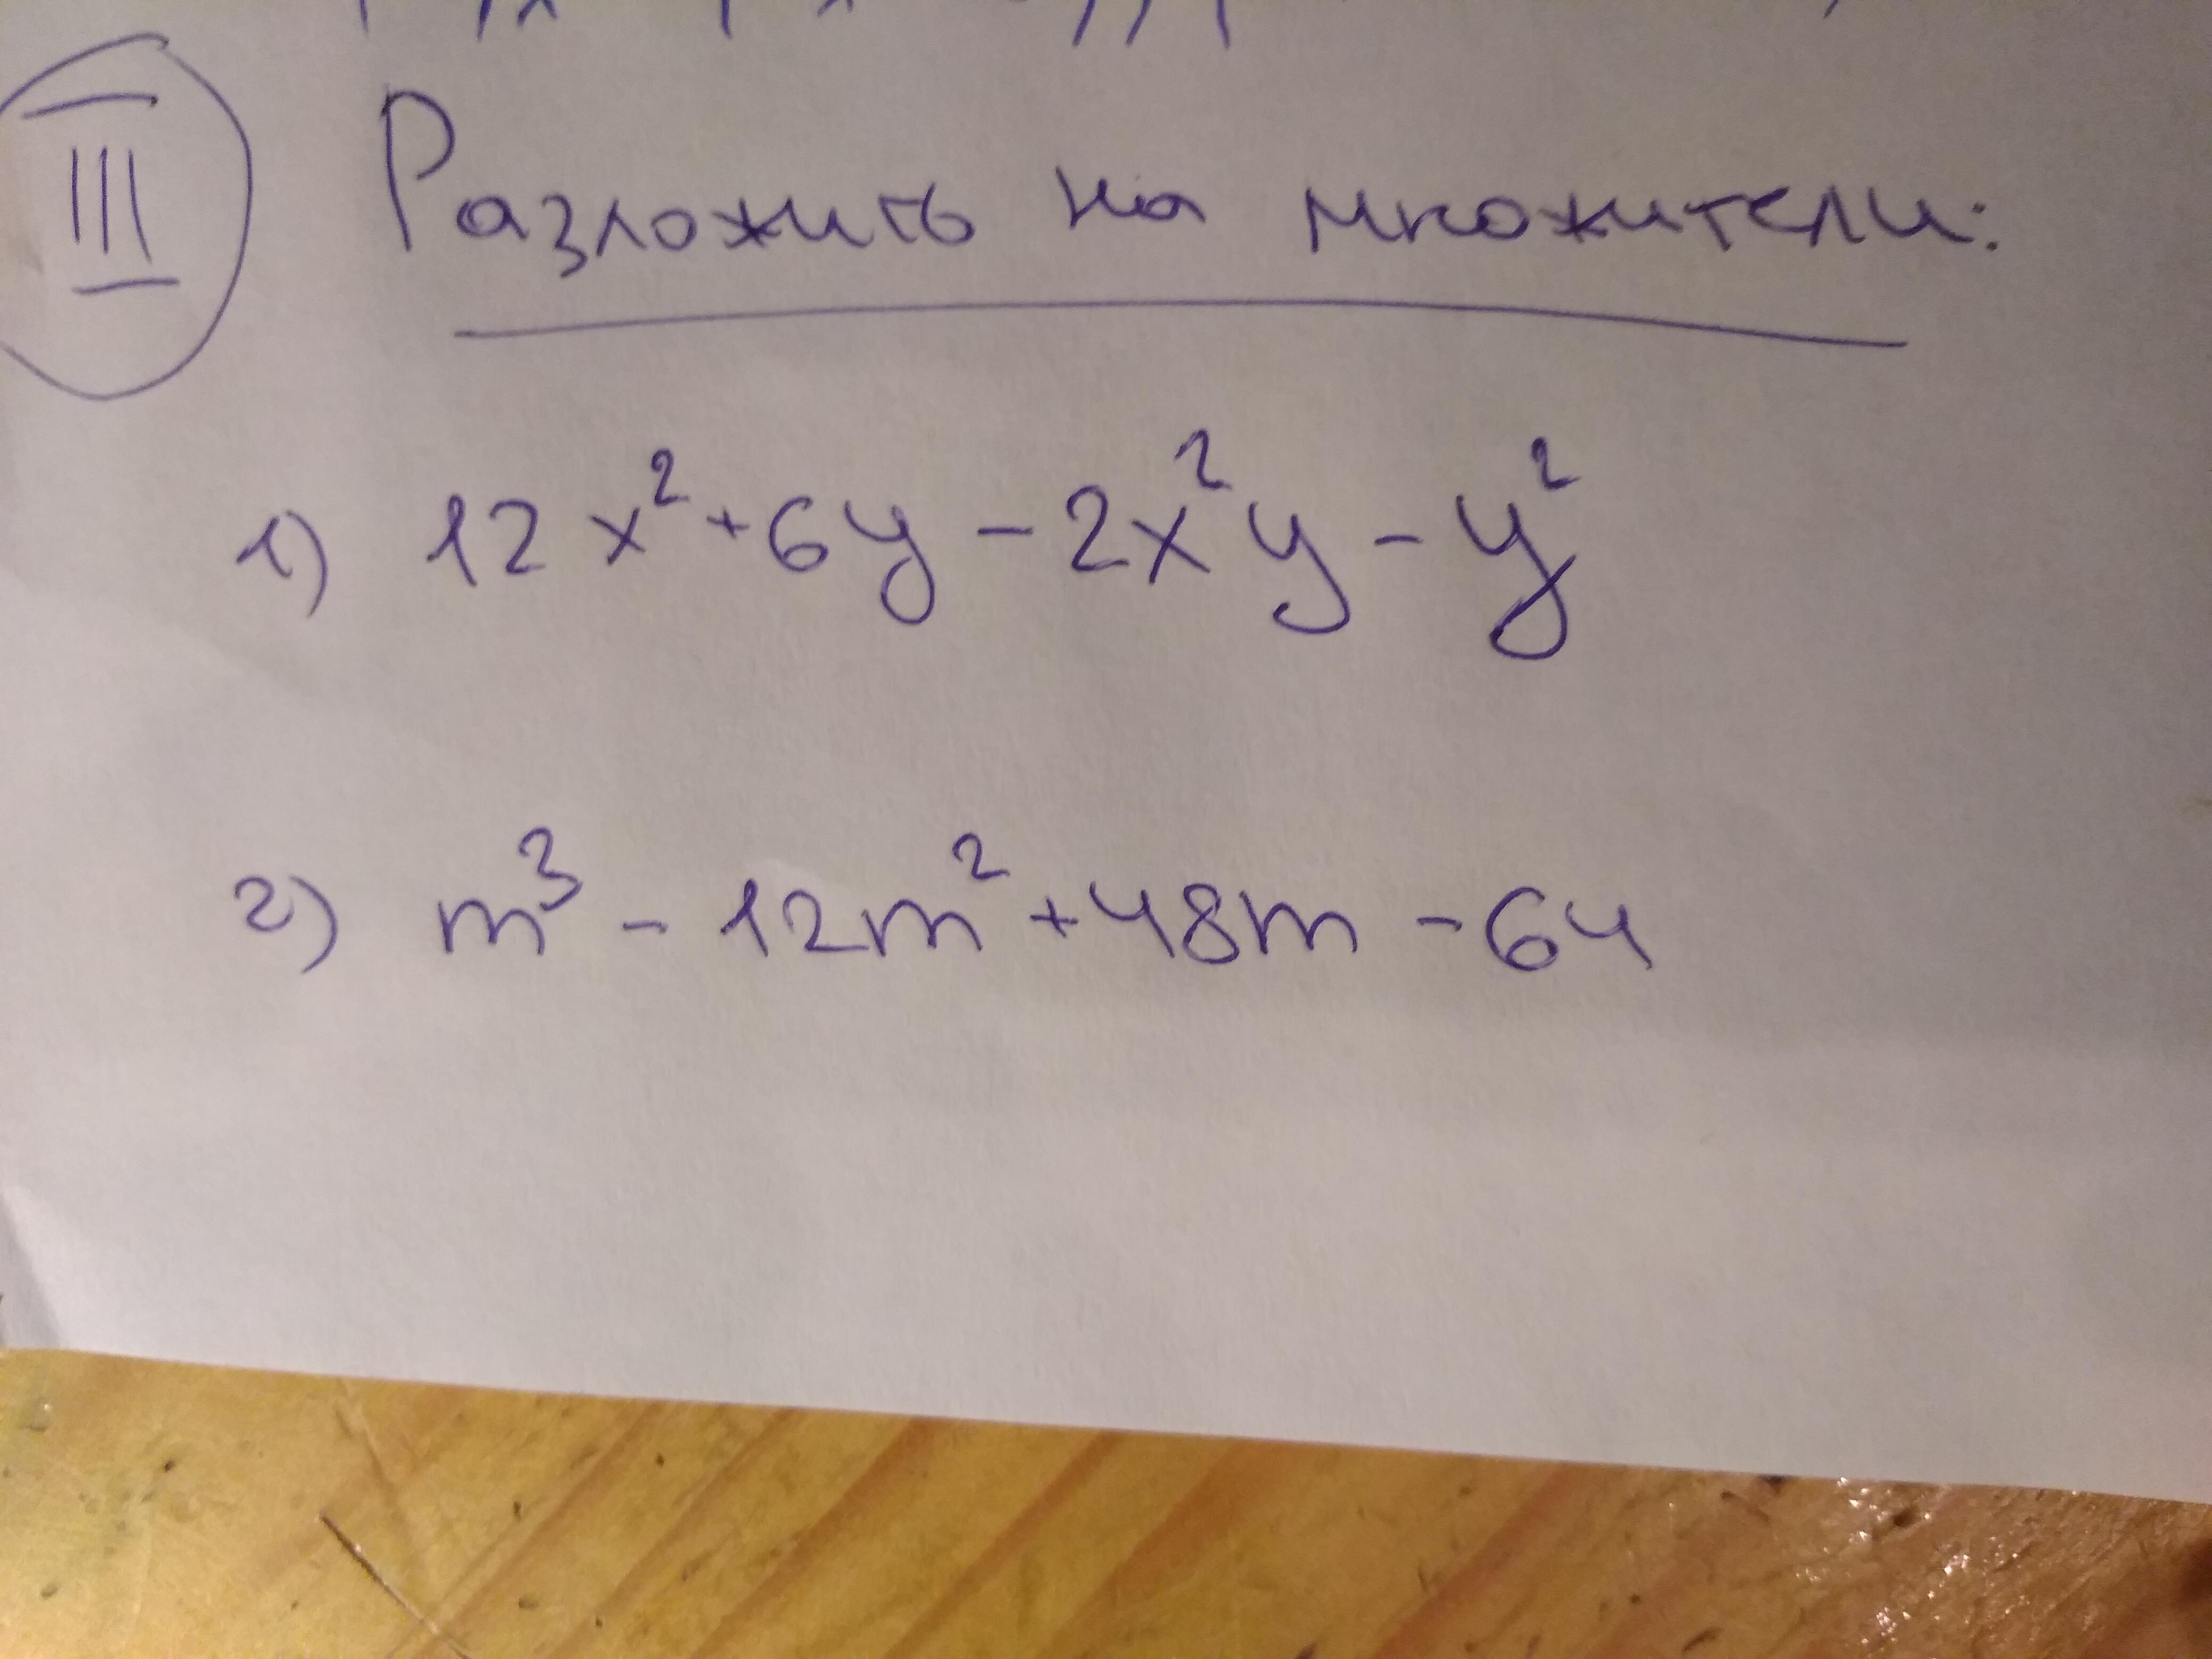 III Разложить на множители:
1) 12x² + 6y - 2x²y - y²
2) m³ - 12m² + 48m - 64